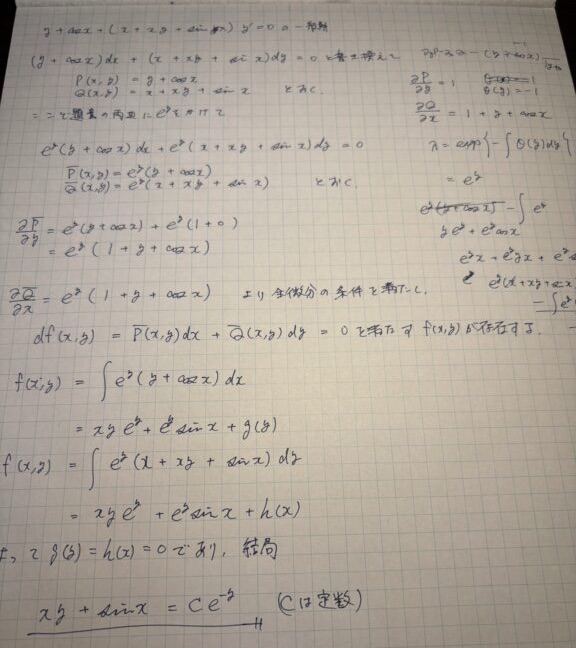 y + cos x + (x + xy + sin x) y' = 0 の一般解
(y + cos x) dx + (x + xy + sin x) dy = 0 と書き換えて
P(x, y) = y + cos x
Q(x, y) = x + xy + sin x とおく.
ここで題意の両辺に e^y をかけて
e^y (y + cos x) dx + e^y (x + xy + sin x) dy = 0
P̅(x,y) = e^y (y + cos x)
Q̅(x,y) = e^y (x + xy + sin x) とおく.
∂P̅/∂y = e^y (y + cos x) + e^y (1 + 0)
= e^y (1 + y + cos x)
∂Q̅/∂x = e^y (1 + y + cos x) より全微分の条件を満たし,
df(x,y) = P̅(x,y) dx + Q̅(x,y) dy = 0 を満たす f(x,y) が存在する.
f(x,y) = ∫ e^y (y + cos x) dx
= xy e^y + e^y sin x + g(y)
f(x,y) = ∫ e^y (x + xy + sin x) dy
= xy e^y + e^y sin x + h(x)
よって g(y) = h(x) = 0 であり, 結局
xy + sin x = C e^-y (Cは定数)
∂P/∂y = 1
Q(y) = -1
∂Q/∂x = 1 + y + cos x
λ = exp{-∫ Q(y) dy}
= e^y
- ∫ e^y
y e^y + e^y cos x
e^y x + e^y yx + e^y s
e^y (x + xy + sin x)
- ∫ e^y